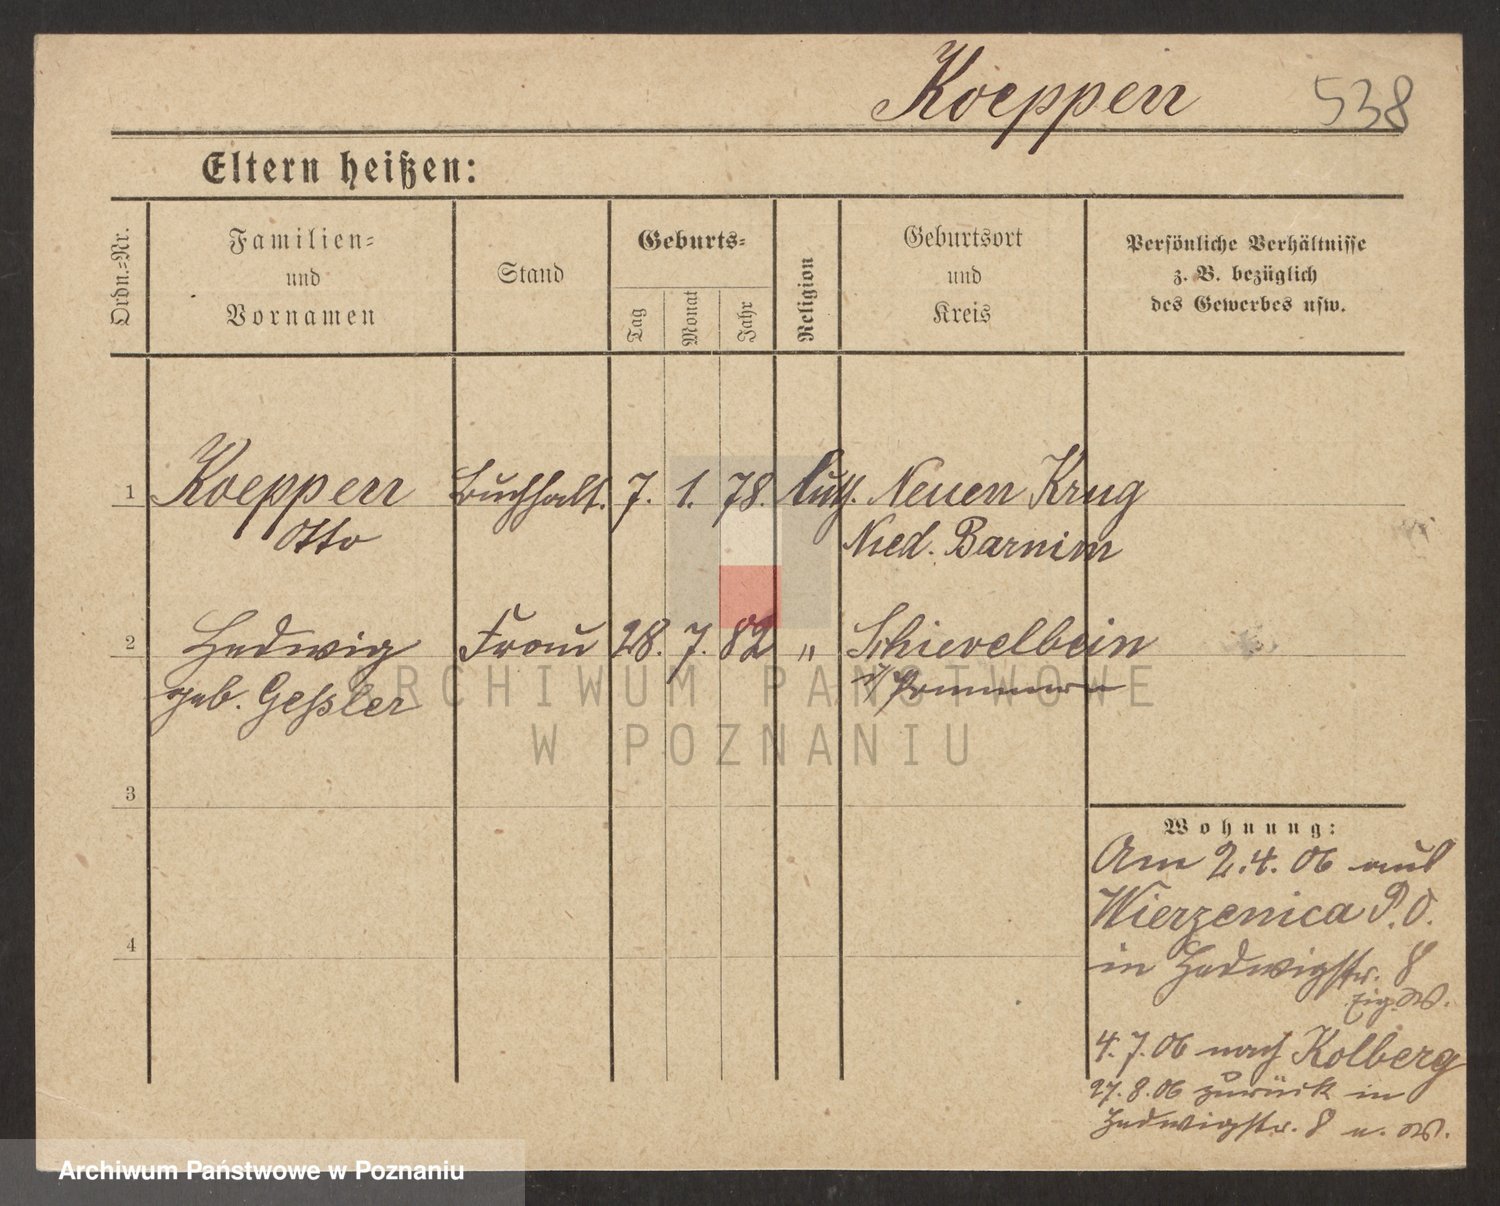 Koeppen 538
Eltern heißen:
Ordn.-Nr.
Familien-
und
Vornamen
Stand
Geburts-
Tag
Monat
Jahr
Religion
Geburtsort
und
Kreis
Persönliche Verhältnisse
z. B. bezüglich
des Gewerbes usw.
1 Koeppen Buchhalt. 7. 1. 78. luth. Neuen Krug
Otto Nied. Barnim
2 Hedwig Frau 28. 7. 82 " Schievelbein
geb. Geßler i/Pommern
3
4
Wohnung:
Am 2.4.06 aus
Wierzenica P.O.
in Hedwigstr. 8
Eig. W.
4.7.06 nach Kolberg
27.8.06 zurück in
Hedwigstr. 8 e. W.
ARCHIWUM PAŃSTWOWE
W POZNANIU
Archiwum Państwowe w Poznaniu